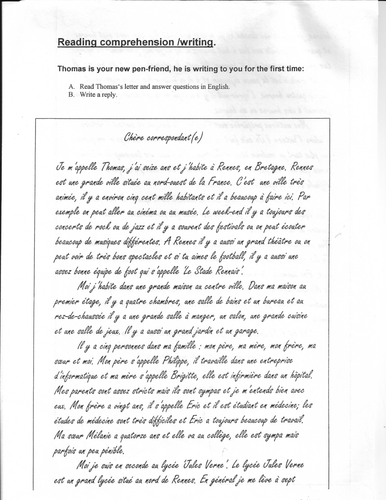 Reading comprehension /writing.
Thomas is your new pen-friend, he is writing to you for the first time:
A. Read Thomas's letter and answer questions in English.
B. Write a reply.
Chère correspondant(e)
Je m'appelle Thomas, j'ai seize ans et j'habite à Rennes, en Bretagne. Rennes
est une grande ville située au nord-ouest de la France. C'est une ville très
animée, il y a environ cinq cent mille habitants et il a beaucoup à faire ici. Par
exemple on peut aller au cinéma ou au musée. Le week-end il y a toujours des
concerts de rock ou de jazz et il y a souvent des festivals ou on peut écouter
beaucoup de musiques différentes. A Rennes il y a aussi un grand théâtre ou on
peut voir de très bons spectacles et si tu aimes le football, il y a aussi une
assez bonne équipe de foot qui s'appelle 'Le Stade Rennais'.
Moi j'habite dans une grande maison au centre ville. Dans ma maison au
premier étage, il y a quatre chambres, une salle de bains et un bureau et au
res-de-chaussée il y a une grande salle à manger, un salon, une grande cuisine
et une salle de jeux. Il y a aussi un grand jardin et un garage.
Il y a cinq personnes dans ma famille : mon père, ma mère, mon frère, ma
sœur et moi. Mon père s'appelle Philippe, il travaille dans une entreprise
d'informatique et ma mère s'appelle Brigitte, elle est infirmière dans un hôpital.
Mes parents sont assez stricts mais ils sont sympas et je m'entends bien avec
eux. Mon frère a vingt ans, il s'appelle Eric et il est étudiant en médecine; les
études de médecine sont très difficiles et Eric a toujours beaucoup de travail.
Ma sœur Mélanie a quatorze ans et elle va au collège, elle est sympa mais
parfois un peu pénible.
Moi je suis en seconde au lycée 'Jules Verne'. Le lycée Jules Verne
est un grand lycée situé au nord de Rennes. En général je me lève à sept